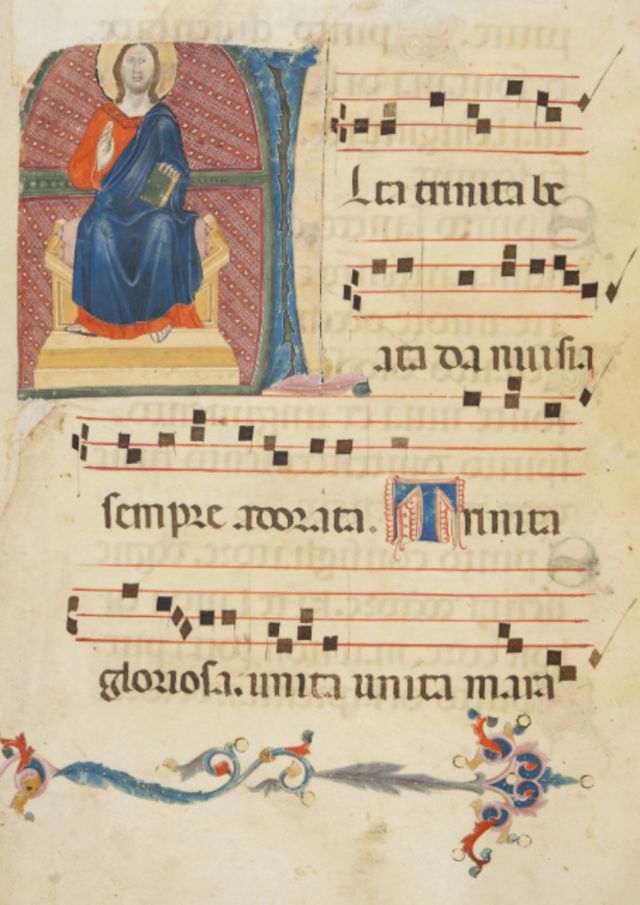 Alta trinita be
ata da nui sia
sempre adorata. Trinita
gloriosa. unita unita mara